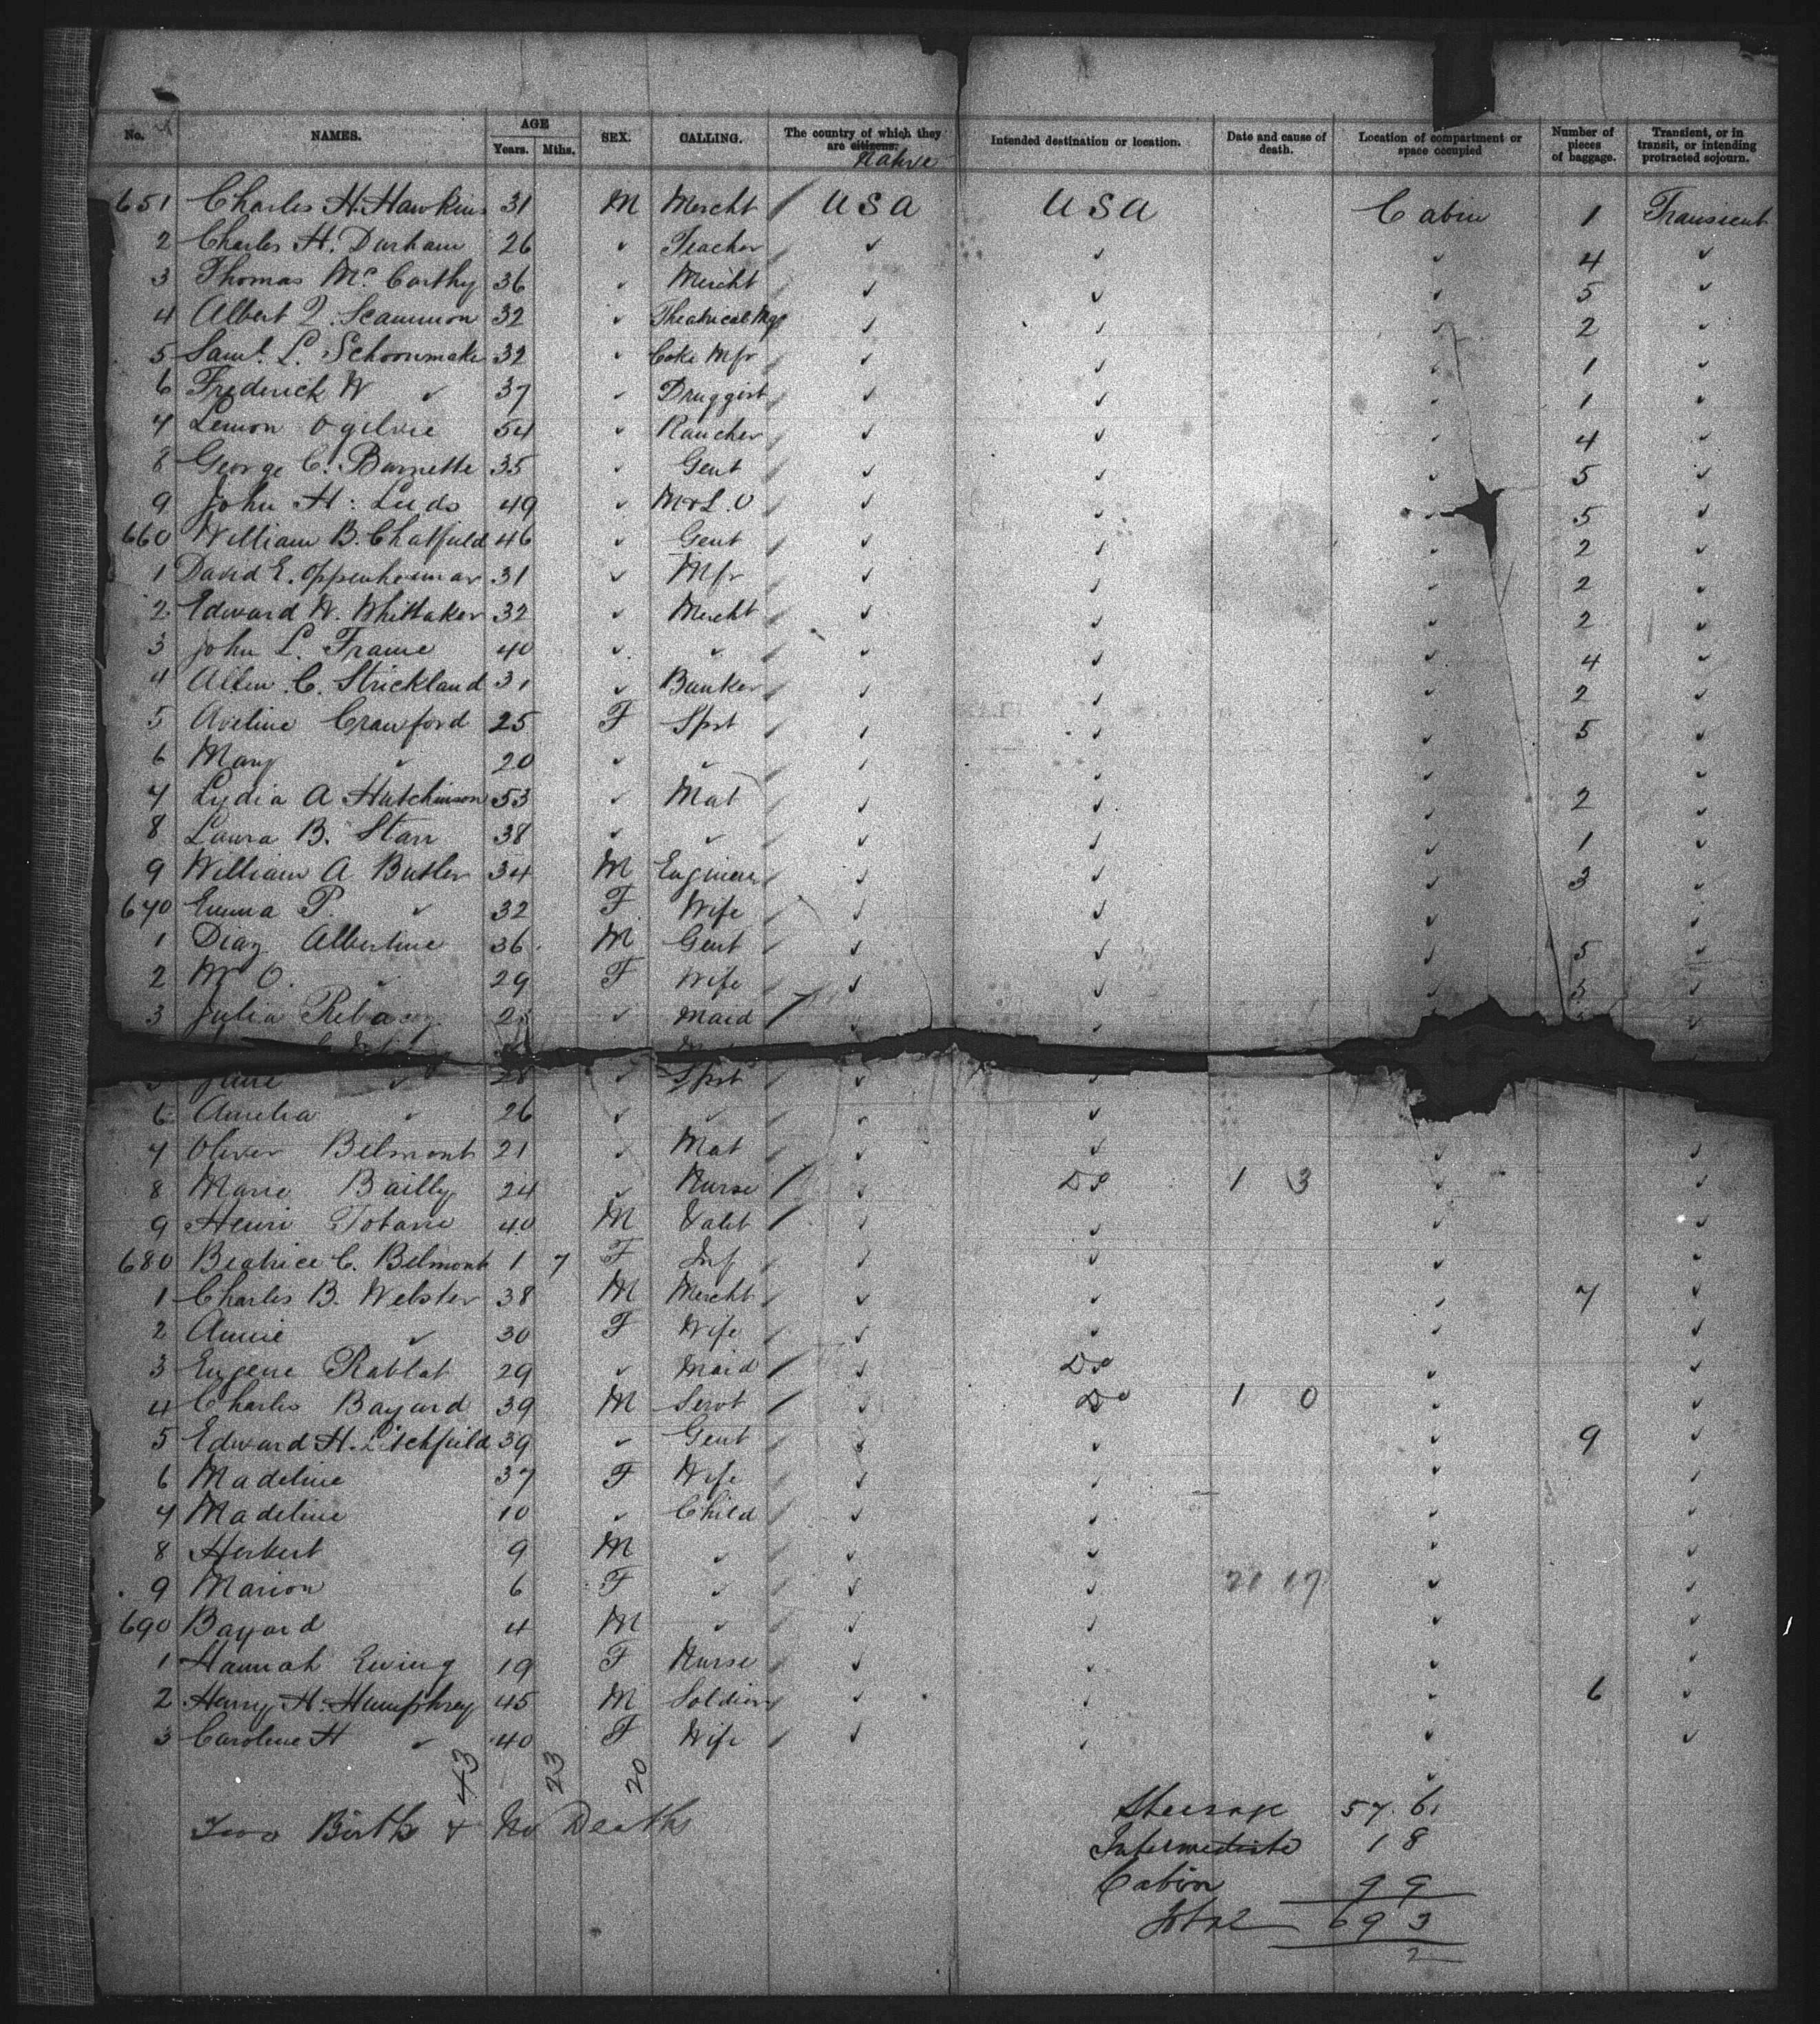 No. NAMES. AGE Years. Mths. SEX. CALLING. The country of which they are citizens. Native Intended destination or location. Date and cause of death. Location of compartment or space occupied Number of pieces of baggage. Transient, or in transit, or intending protracted sojourn.
651 Charles H. Hawkins 31 M Mercht / USA USA Cabin 1 Transient
2 Charles H. Durham 26 ✓ Teacher ✓ ✓ ✓ 4 ✓
3 Thomas Mc Carthy 36 ✓ Mercht ✓ ✓ ✓ 5 ✓
4 Albert Q. Scammon 32 ✓ Theatrical Mgr ✓ ✓ ✓ 2 ✓
5 Saml. L. Schoonmaker 32 ✓ Coke Mfr ✓ ✓ ✓ 1 ✓
6 Frederick W ✓ 37 ✓ Druggist ✓ ✓ ✓ 1 ✓
7 Lemon Ogilvie 54 ✓ Rancher ✓ ✓ ✓ 4 ✓
8 George C. Barnette 35 ✓ Gent ✓ ✓ ✓ 5 ✓
9 John H. Leeds 49 ✓ ✓ ✓ ✓ 5 ✓
660 William B. Chatfield 46 ✓ Gent ✓ ✓ ✓ 2 ✓
1 David E. Oppenheimar 31 ✓ Mfr ✓ ✓ ✓ 2 ✓
2 Edward W. Whittaker 32 ✓ Mercht ✓ ✓ ✓ 2 ✓
3 John L. Frame 40 ✓ ✓ ✓ ✓ ✓ 4 ✓
4 Allen C. Strickland 31 ✓ Banker ✓ ✓ ✓ 2 ✓
5 Aveline Crawford 25 F Spst ✓ ✓ ✓ 5 ✓
6 Mary ✓ 20 ✓ ✓ ✓ ✓ ✓ ✓
7 Lydia A Hutchinson 53 ✓ Mat ✓ ✓ ✓ 2 ✓
8 Laura B. Starr 38 ✓ ✓ ✓ ✓ ✓ 1 ✓
9 William A Butler 34 M Engineer ✓ ✓ ✓ 3 ✓
670 Emma P. ✓ 32 F Wife ✓ ✓ ✓ ✓
1 Diaz Albertine 36 M Gent ✓ ✓ ✓ 5 ✓
2 M O. ✓ 29 F Wife ✓ ✓ ✓ 5 ✓
3 Julia ✓ Maid / ✓ ✓ ✓ ✓
5 Jane ✓ 28 ✓ Spst ✓ ✓
6 Amelia ✓ 26 ✓ ✓ ✓ ✓
7 Oliver Belmont 21 ✓ Mat ✓ ✓ ✓ ✓
8 Marie Bailly 24 ✓ Nurse / ✓ Do 1 3 ✓ ✓
9 Henri 40 M Valet / ✓ ✓ ✓ ✓
680 Beatrice C. Belmont 1 7 F Inf ✓ ✓ ✓ ✓
1 Charles B. Webster 38 M Mercht ✓ ✓ ✓ 7 ✓
2 Annie ✓ 30 F Wife ✓ ✓ ✓ ✓
3 Eugene Rablat 29 ✓ Maid / ✓ Do ✓ ✓
4 Charles Bayard 39 M Servt / ✓ Do 1 0 ✓ ✓
5 Edward H. Litchfield 39 ✓ Gent ✓ ✓ ✓ 9 ✓
6 Madeline 37 F Wife ✓ ✓ ✓ ✓
7 Madeline 10 ✓ Child ✓ ✓ ✓ ✓
8 Herbert 9 M ✓ ✓ ✓ ✓ ✓
9 Marion 6 F ✓ ✓ ✓ ✓ ✓
690 Bayard 4 M ✓ ✓ ✓ ✓ ✓
1 Hannah Ewing 19 F Nurse ✓ ✓ ✓ ✓
2 Harry H. Humphrey 45 M Soldier ✓ ✓ ✓ 6 ✓
3 Caroline H ✓ 40 F Wife ✓ ✓ ✓ ✓
43 23 20
Two Births & No Deaths
Steerage 576
Intermediate 18
Cabin 99
Total 693
2